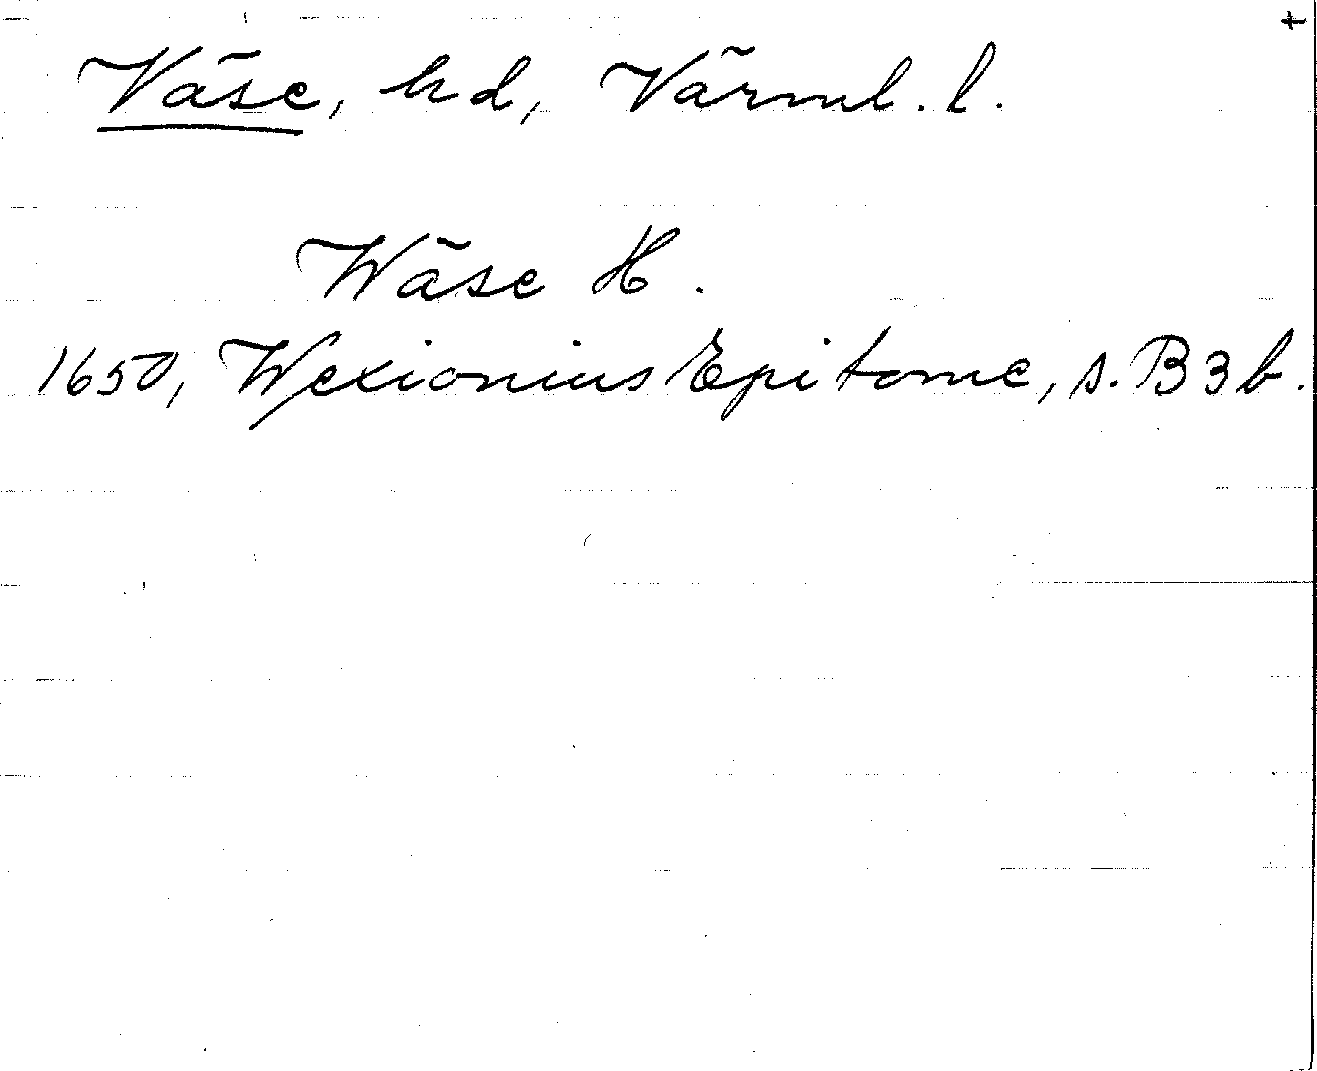 +
Väse, hd, Värml. l.
Wäse H.
1650, Wexionius Epitome, s. B3b.